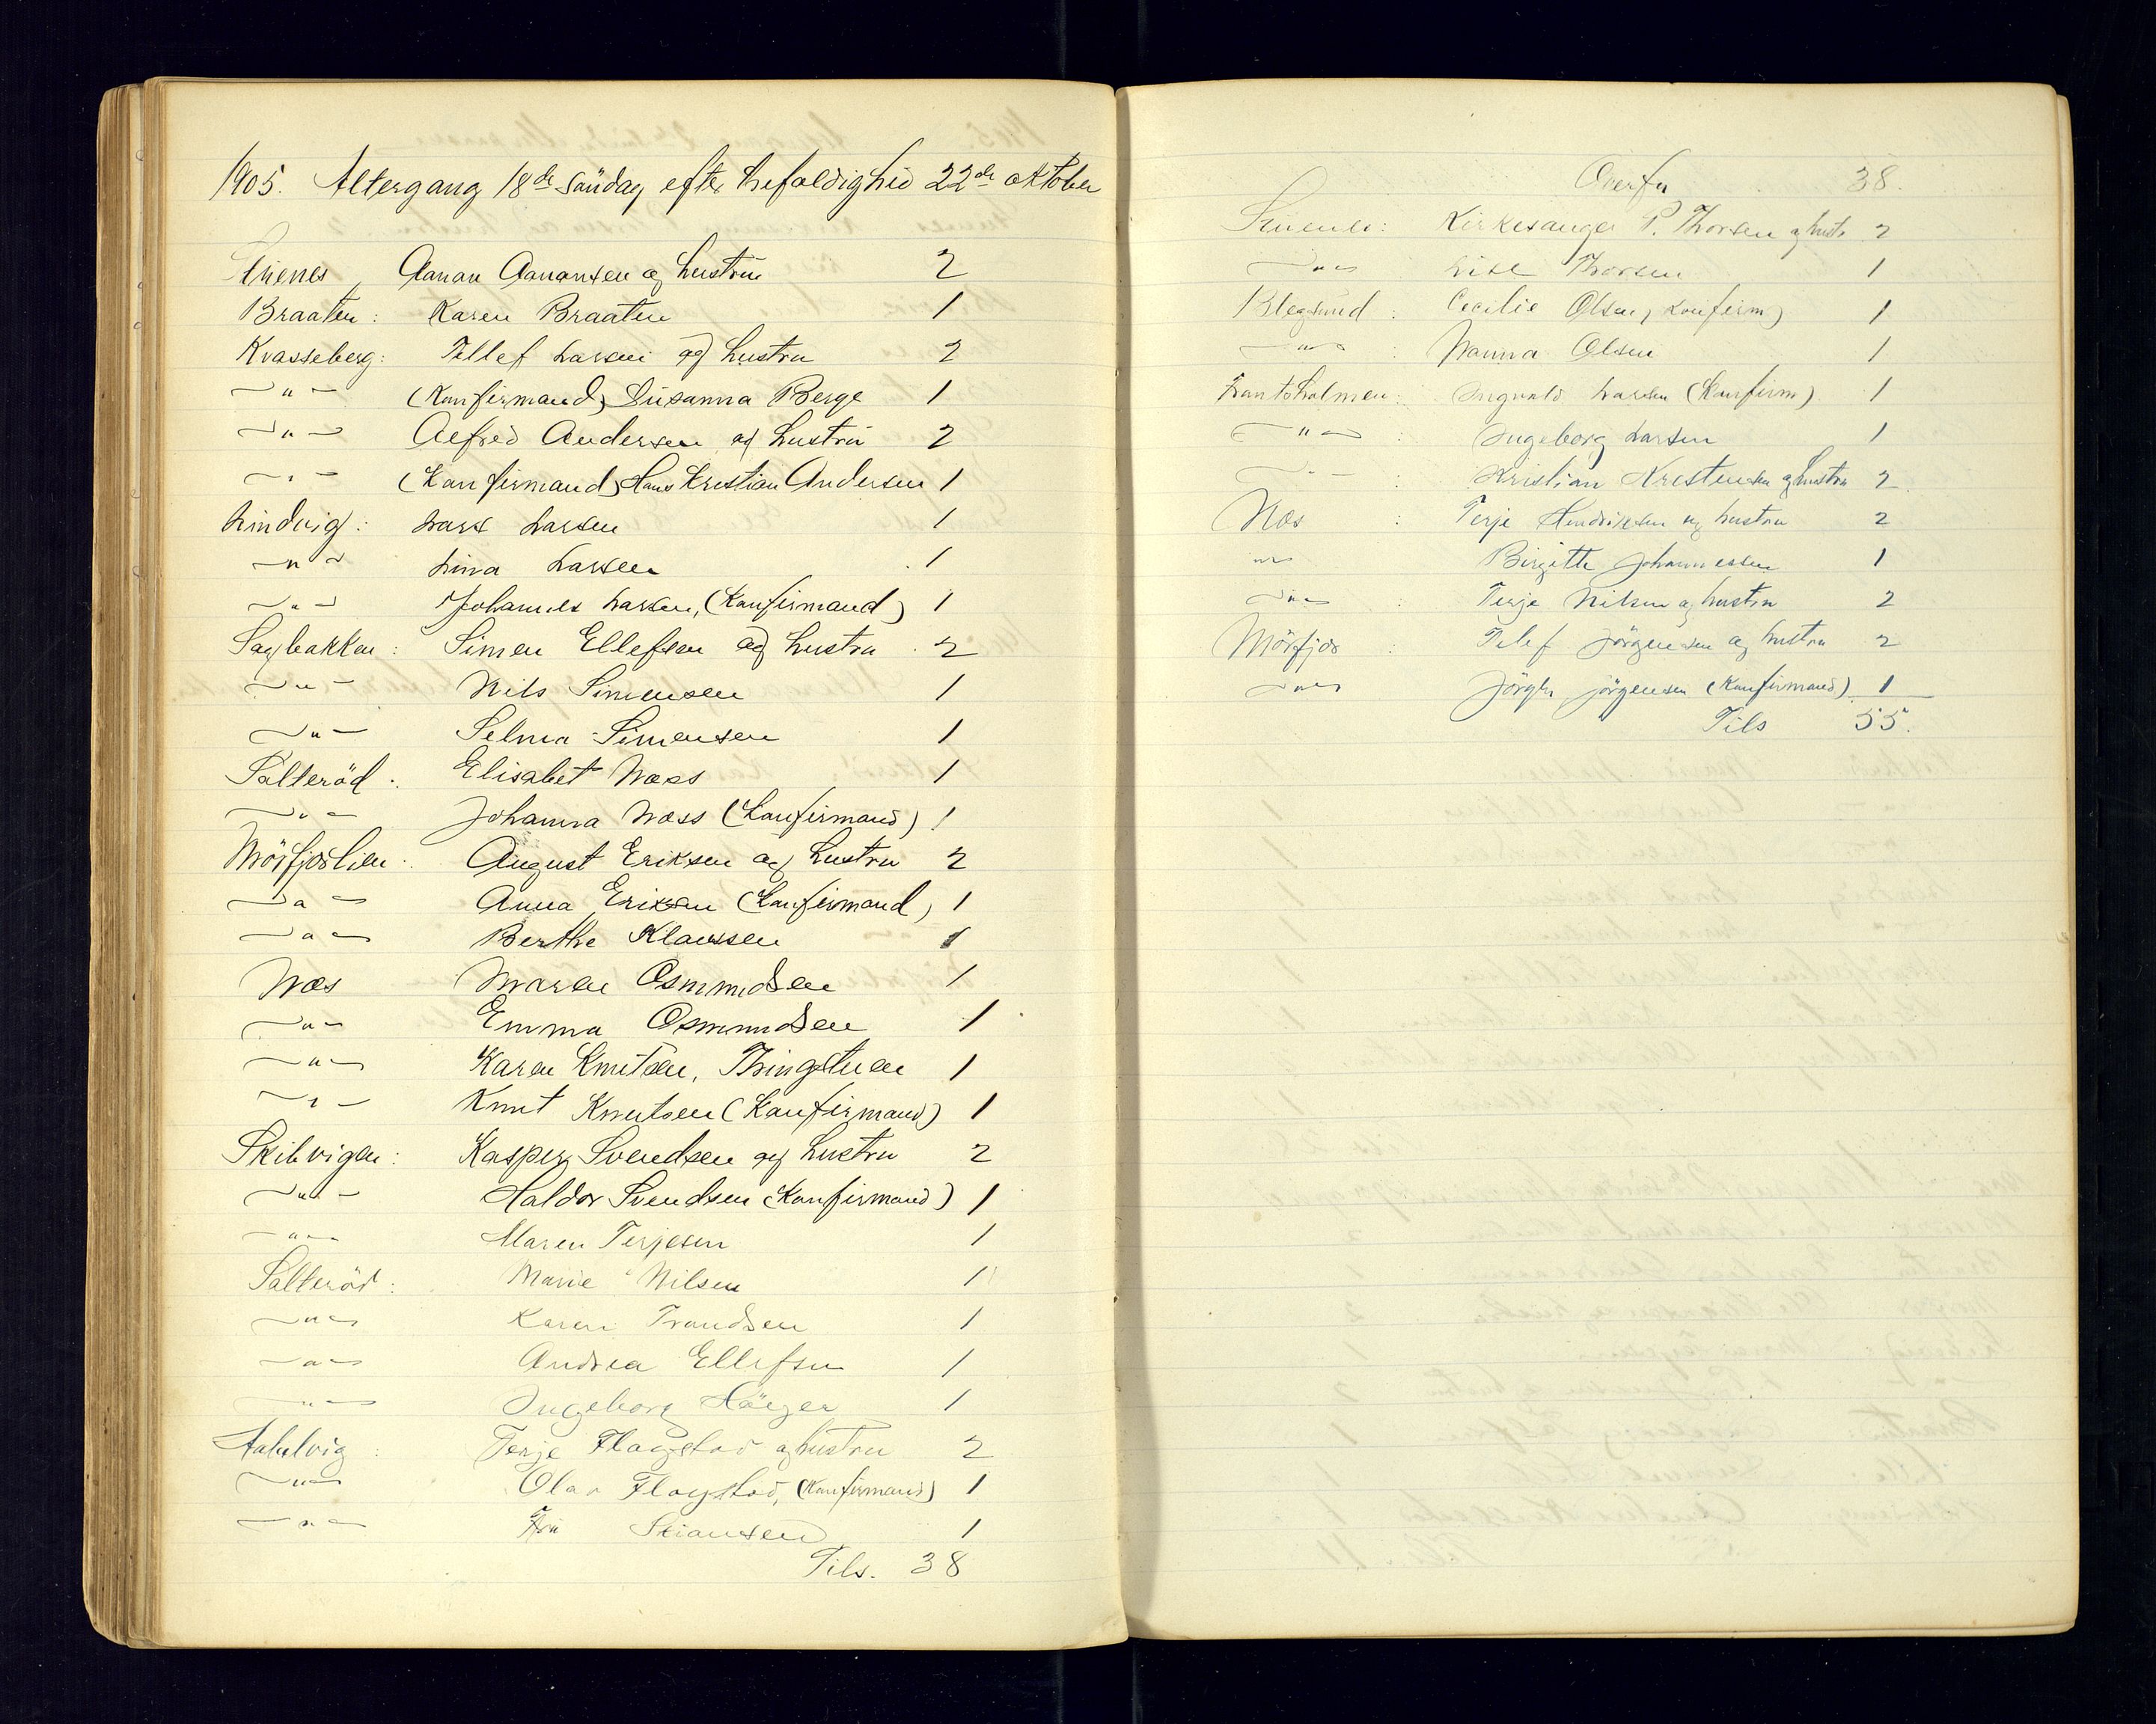 1905. Altergang 18de Søndag efter trefoldighed 22de oktober
Stienes Aanan Aanansen og hustru 2
Braaten: Karen Braaten 1
Kvasseberg: Tellef Larsen og hustru 2
— " — (Konfirmand) Susanna Berge 1
— " — Alfred Andersen og hustru 2
— " — (Konfirmand) Hans Kristian Andersen 1
Lindvig: Lars Larsen 1
— " — Lina Larsen 1
— " — Johannes Larsen, (Konfirmand) 1
Sagbakken: Simen Ellefsen og hustru 2
— " — Nils Simensen 1
— " — Selma Simensen 1
Salteröd: Elisabet Næss 1
— " — Johanna Næss (Konfirmand) 1
Mörfjærlien: August Eriksen og hustru 2
— " — Anna Eriksen (Konfirmand) 1
— " — Berthe Klaussen 1
Næs Maren Osmundsen 1
— " — Emma Osmundsen 1
— " — Karen Knutsen, Thingstuen 1
— " — Knut Knutsen (Konfirmand) 1
Skibvigen: Kasper Svendsen og hustru 2
— " — Haldor Svendsen (Konfirmand) 1
— " — Maren Terjesen 1
Salteröd: Marie Nilsen 1
— " — Karen Trondsen 1
— " — Andrea Ellefsen 1
— " — Ingeborg 1
Terje Flagstad og hustru 2
— " — Olav Flagstad, (Konfirmand) 1
— " — Fru Stiansen 1
Tils. 38
Overfør 38.
Kirkesanger P. Thorsen og hustr 2
— " — Lise Thorsen 1
Blegsund: Cecilie Olsen, Konfirm) 1
— " — : Nanna Olsen 1
Ingvald Larsen (Konfirm) 1
— " — : Ingeborg Larsen 1
— " — : Kristian Kristensen og hustru 2
Næs : Terje Hendriksen og hustru 2
— " — Birgitte Johannessen 1
— " — : Terje Nilsen og hustru 2
Mörfjær : Telef Jörgensen og hustru 2
— " — Jörgen Jörgensen (Konfirmand) 1
Tils 55.